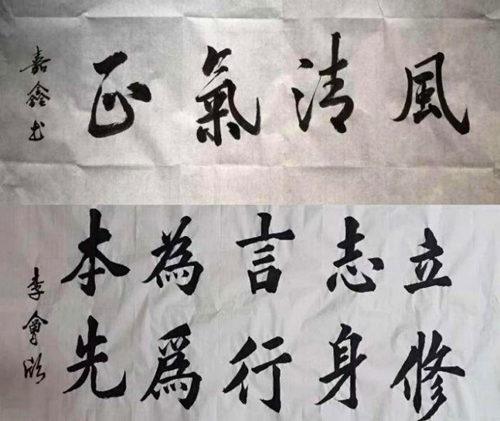 風清氣正
嘉鑫书
立志言為本
修身行爲先
李會